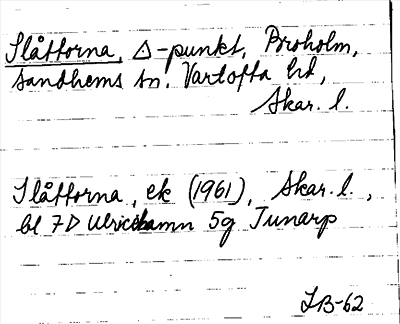 Slåttorna, △-punkt, Broholm,
Sandhems sn, Vartofta hd,
Skar. l.
Slåttorna, ek (1961), Skar. l.,
bl 7D Ulricehamn 5g Tunarp
LB-62